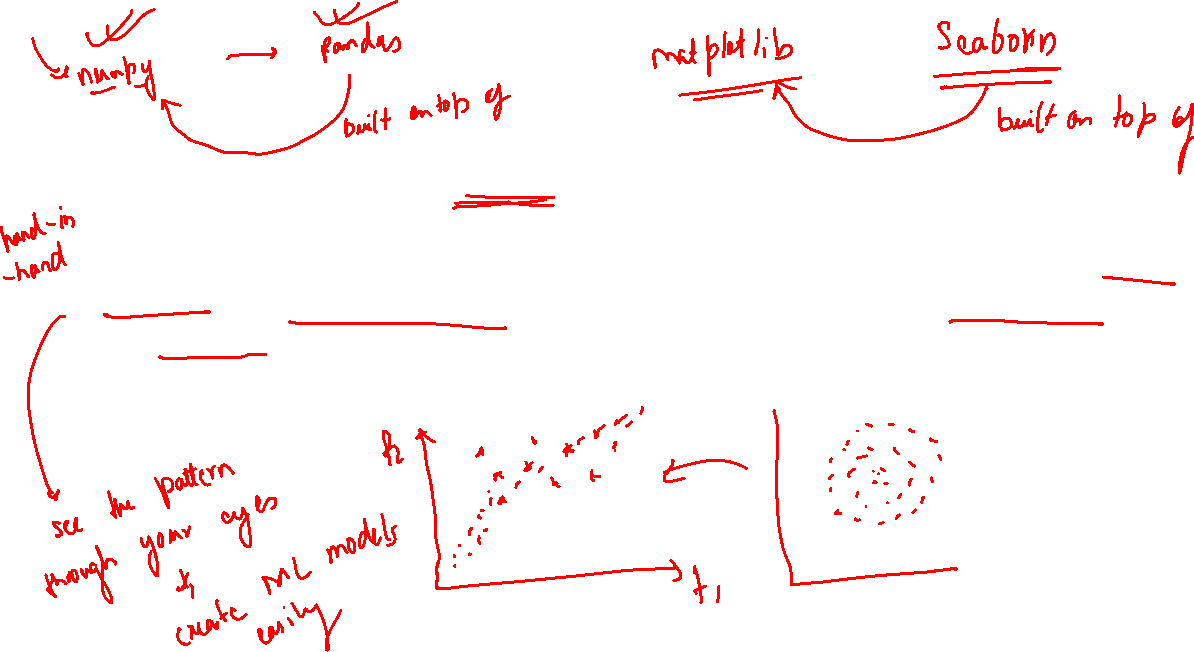 numpy → pandas
built on top of
matplotlib
Seaborn
built on top of
hand-in
-hand
see the pattern
through your eyes
&
create ML models
easily
f2
f1